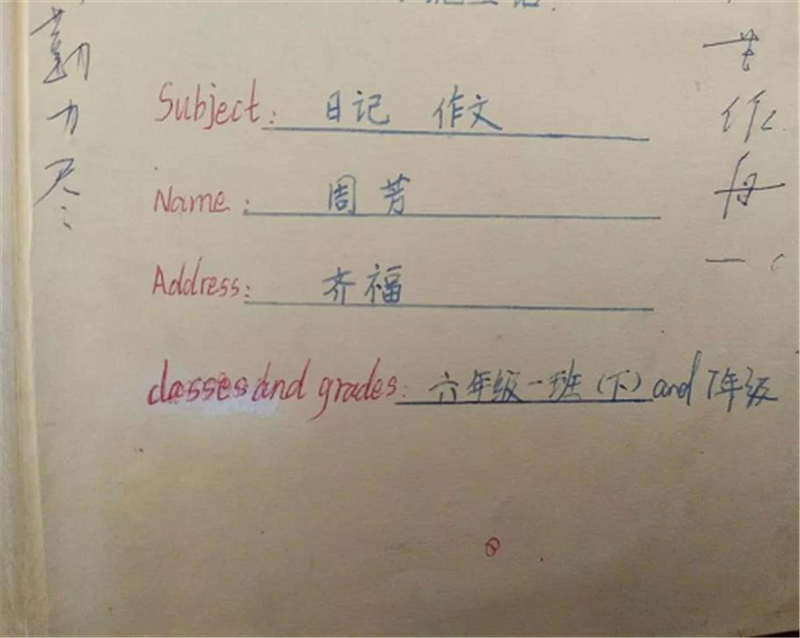 Subject: 日记 作文
Name: 周芳
Address: 齐福
classes and grades: 六年级一班(下) and 7年级
勤
力
尽
苦
作
舟